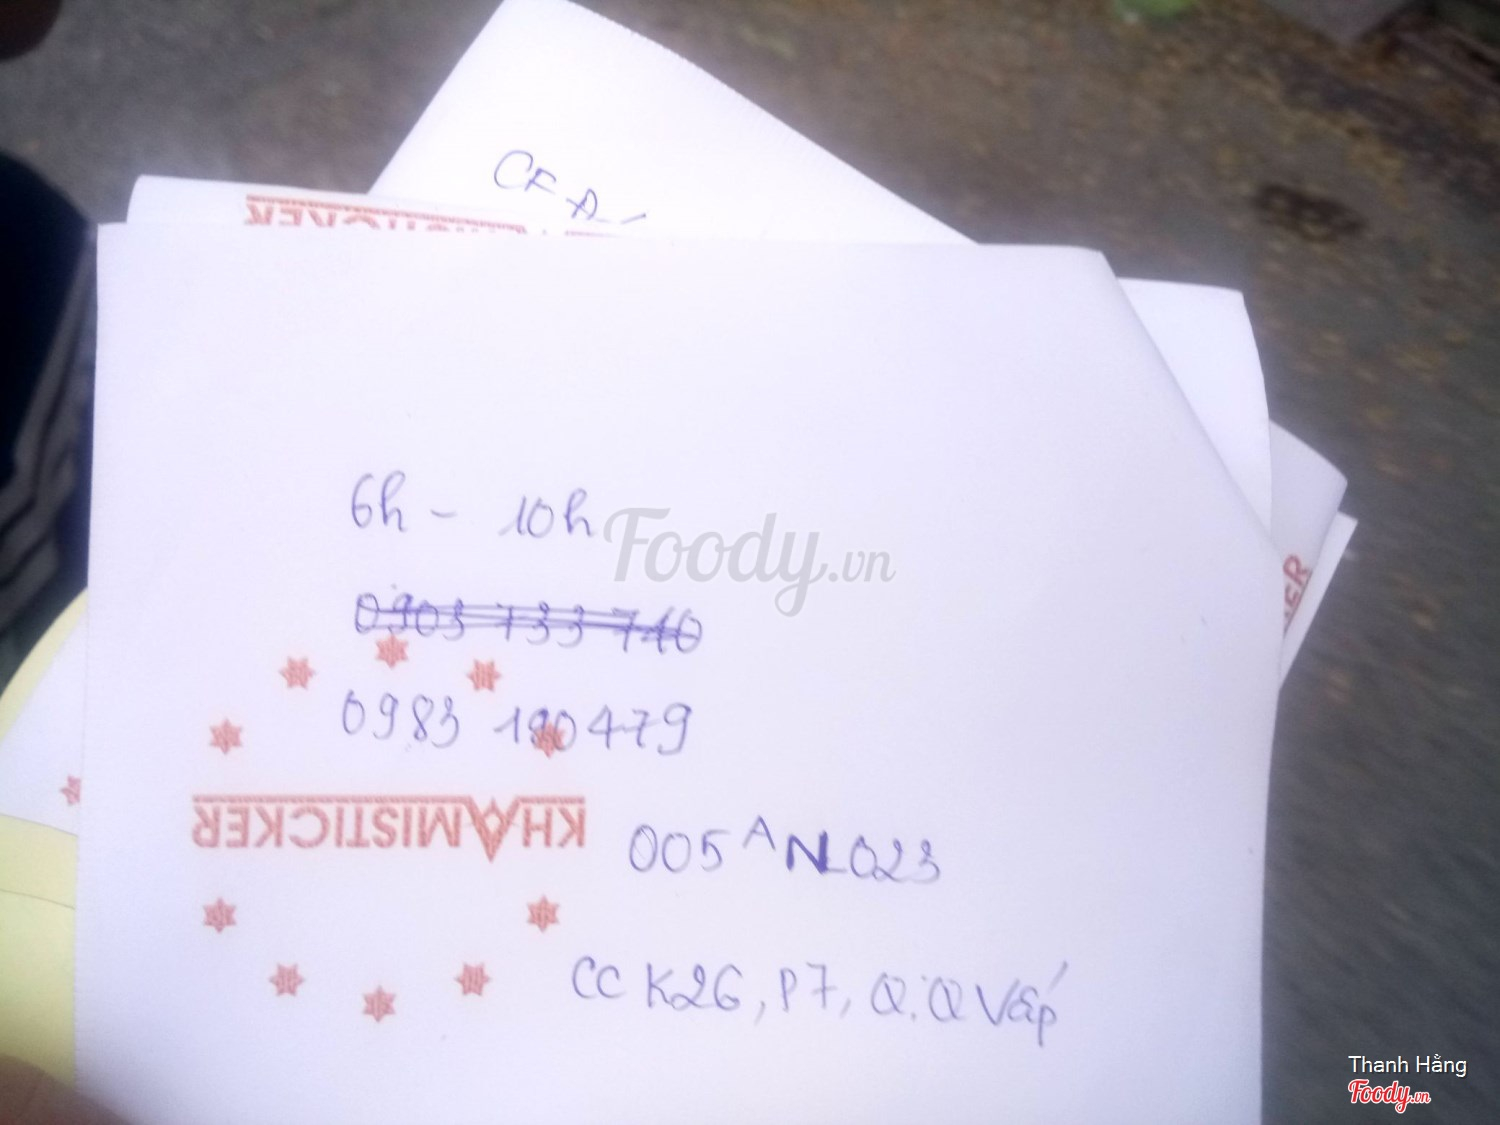 CF A
6h - 10h
Foody.vn
0903 733 740
0983 190479
KHAMISTICKER
005 A NL023
CC K26, P7, Q. Q Vấp
Thanh Hằng
Foody.vn